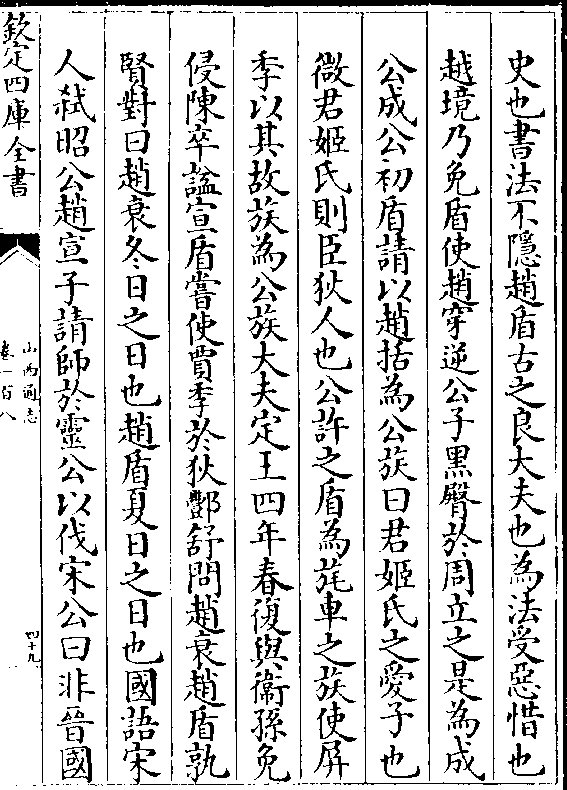 史也書法不隱趙盾古之良大夫也為法受惡惜也
越境乃免盾使趙穿逆公子黑臀於周立之是為成
公成公初盾請以趙括為公族曰君姬氏之愛子也
微君姬氏則臣狄人也公許之盾為旄車之族使屏
季以其故族為公族大夫定王四年春復與衛孫免
侵陳卒諡宣盾嘗使賈季於狄酆舒問趙衰趙盾孰
賢對曰趙衰冬日之日也趙盾夏日之日也國語宋
人弒昭公趙宣子請師於靈公以伐宋公曰非晉國
欽定四庫全書
山西通志
卷一百八
四十九